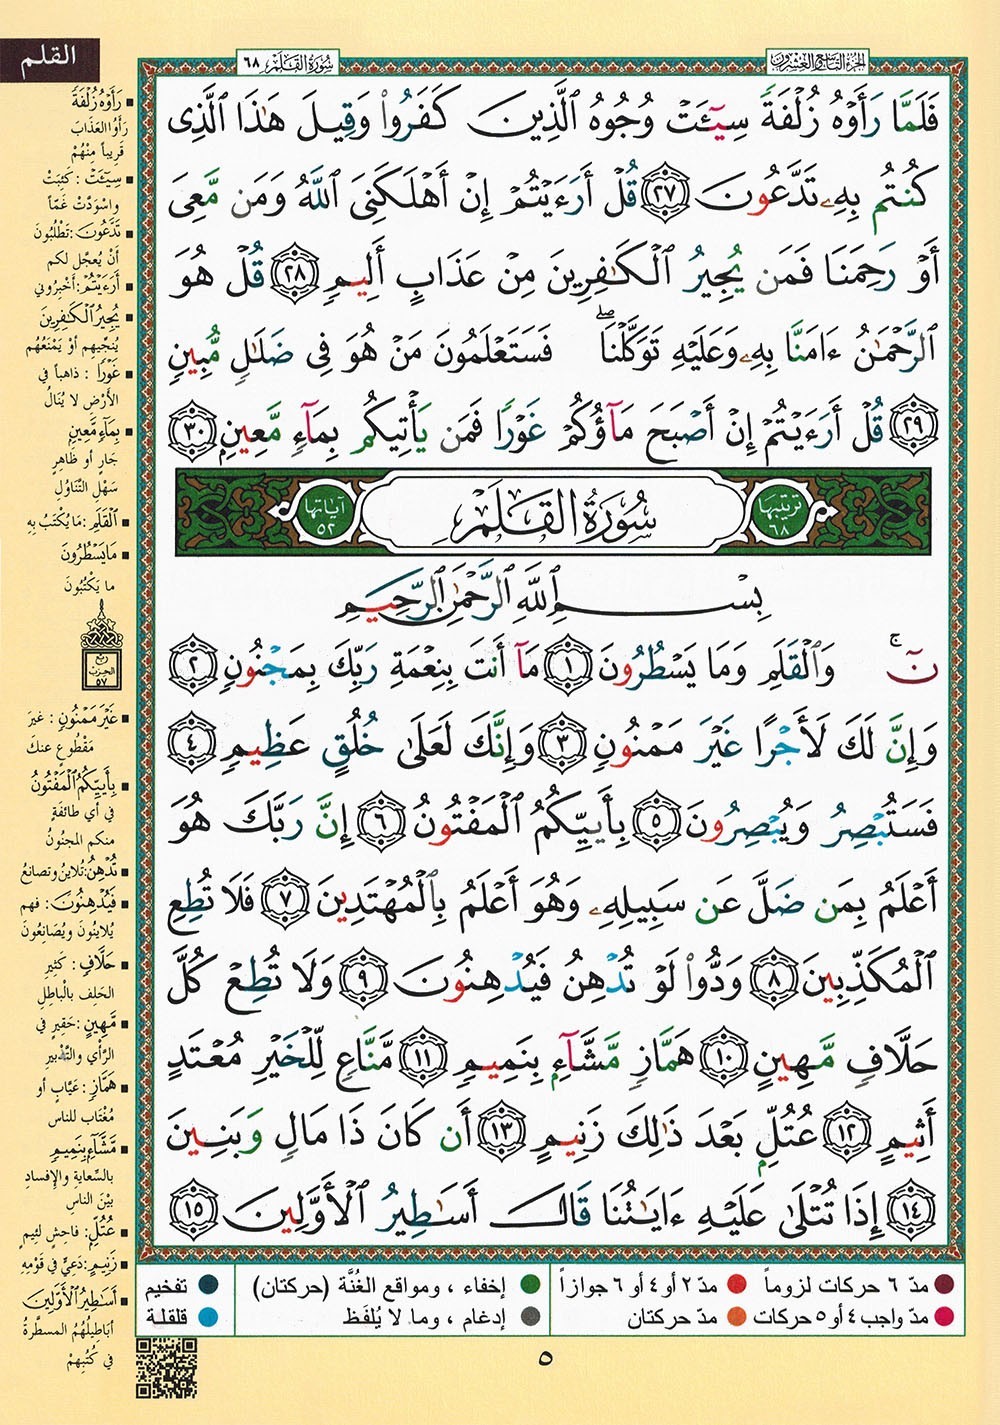 القلم
سُورَةُ القَلَم ٦٨
الجزء التاسع والعشرون
فَلَمَّا رَأَوْهُ زُلْفَةً سِيٓـَٔتْ وُجُوهُ ٱلَّذِينَ كَفَرُوا۟ وَقِيلَ هَٰذَا ٱلَّذِى
كُنتُم بِهِۦ تَدَّعُونَ ٢٧ قُلْ أَرَءَيْتُمْ إِنْ أَهْلَكَنِىَ ٱللَّهُ وَمَن مَّعِىَ
أَوْ رَحِمَنَا فَمَن يُجِيرُ ٱلْكَٰفِرِينَ مِنْ عَذَابٍ أَلِيمٍ ٢٨ قُلْ هُوَ
ٱلرَّحْمَٰنُ ءَامَنَّا بِهِۦ وَعَلَيْهِ تَوَكَّلْنَا ۖ فَسَتَعْلَمُونَ مَنْ هُوَ فِى ضَلَٰلٍ مُّبِينٍ
٢٩ قُلْ أَرَءَيْتُمْ إِنْ أَصْبَحَ مَآؤُكُمْ غَوْرًا فَمَن يَأْتِيكُم بِمَآءٍ مَّعِينٍۭ ٣٠
ترتيبها ٦٨ سُورَةُ القَلَمِ آياتها ٥٢
بِسْمِ ٱللَّهِ ٱلرَّحْمَٰنِ ٱلرَّحِيمِ
نٓ ۚ وَٱلْقَلَمِ وَمَا يَسْطُرُونَ ١ مَآ أَنتَ بِنِعْمَةِ رَبِّكَ بِمَجْنُونٍ ٢
وَإِنَّ لَكَ لَأَجْرًا غَيْرَ مَمْنُونٍ ٣ وَإِنَّكَ لَعَلَىٰ خُلُقٍ عَظِيمٍ ٤
فَسَتُبْصِرُ وَيُبْصِرُونَ ٥ بِأَييِّكُمُ ٱلْمَفْتُونُ ٦ إِنَّ رَبَّكَ هُوَ
أَعْلَمُ بِمَن ضَلَّ عَن سَبِيلِهِۦ وَهُوَ أَعْلَمُ بِٱلْمُهْتَدِينَ ٧ فَلَا تُطِعِ
ٱلْمُكَذِّبِينَ ٨ وَدُّوا۟ لَوْ تُدْهِنُ فَيُدْهِنُونَ ٩ وَلَا تُطِعْ كُلَّ
حَلَّافٍ مَّهِينٍ ١٠ هَمَّازٍ مَّشَّآءٍۭ بِنَمِيمٍ ١١ مَّنَّاعٍ لِّلْخَيْرِ مُعْتَدٍ
أَثِيمٍ ١٢ عُتُلٍّۭ بَعْدَ ذَٰلِكَ زَنِيمٍ ١٣ أَن كَانَ ذَا مَالٍ وَبَنِينَ
١٤ إِذَا تُتْلَىٰ عَلَيْهِ ءَايَٰتُنَا قَالَ أَسَٰطِيرُ ٱلْأَوَّلِينَ ١٥
رَأَوْهُ زُلْفَةً
رَأوُا العَذَابَ
قَرِيباً مِنْهُمْ
سِيٓـَٔتْ : كَئِبَتْ
واسْوَدَّتْ غَمّاً
تَدَّعُونَ : تَطْلُبُونَ
أنْ يُعجّل لكم
أَرَءَيْتُمْ : أَخْبِرُوني
يُجِيرُ ٱلْكَٰفِرِينَ
يُنَجّيهم أوْ يَمْنَعُهُم
غَوْرًا : ذاهباً في
الأَرْضِ لا يُنَالُ
بِمَآءٍ مَّعِينٍ
جَارٍ أو ظَاهِرٍ
سَهْلِ التّنَاوُلِ
ٱلْقَلَمِ : مَا يُكْتَبُ بِهِ
مَا يَسْطُرُونَ
ما يَكْتُبُونَ
ربع
الحزب
٥٧
غَيْرَ مَمْنُونٍ : غيرَ
مَقْطُوعٍ عنكَ
بِأَييِّكُمُ ٱلْمَفْتُونُ
في أي طائفَةٍ
منكم المجنُونُ
تُدْهِنُ : تُلاينُ وتصانعُ
فَيُدْهِنُونَ : فهم
يُلاينُونَ ويُصَانِعُونَ
حَلَّافٍ : كَثِيرِ
الحَلِفِ بالْبَاطِلِ
مَّهِينٍ : حَقِيرٍ في
الرَّأي والتّدْبيرِ
هَمَّازٍ : عَيّابٍ أو
مُغْتَابٍ للناس
مَّشَّآءٍ بِنَمِيمٍ
بالسّعايةِ والإفسادِ
بَيْنَ الناسِ
عُتُلٍّ : فاحِشٍ لئِيمٍ
زَنِيمٍ : دَعِيٍّ في قَوْمِهِ
أَسَٰطِيرُ ٱلْأَوَّلِينَ
أبَاطِيلُهُمُ المسطَّرةُ
في كُتُبِهِمْ
مدّ ٦ حركات لزوماً مدّ ٢ أو ٤ أو ٦ جوازاً إخفاء ، ومواقع الغُنَّة (حركتان) تفخيم
مدّ واجب ٤ أو ٥ حركات مدّ حركتان إدغام ، وما لا يُلفَظ قلقلة
٥